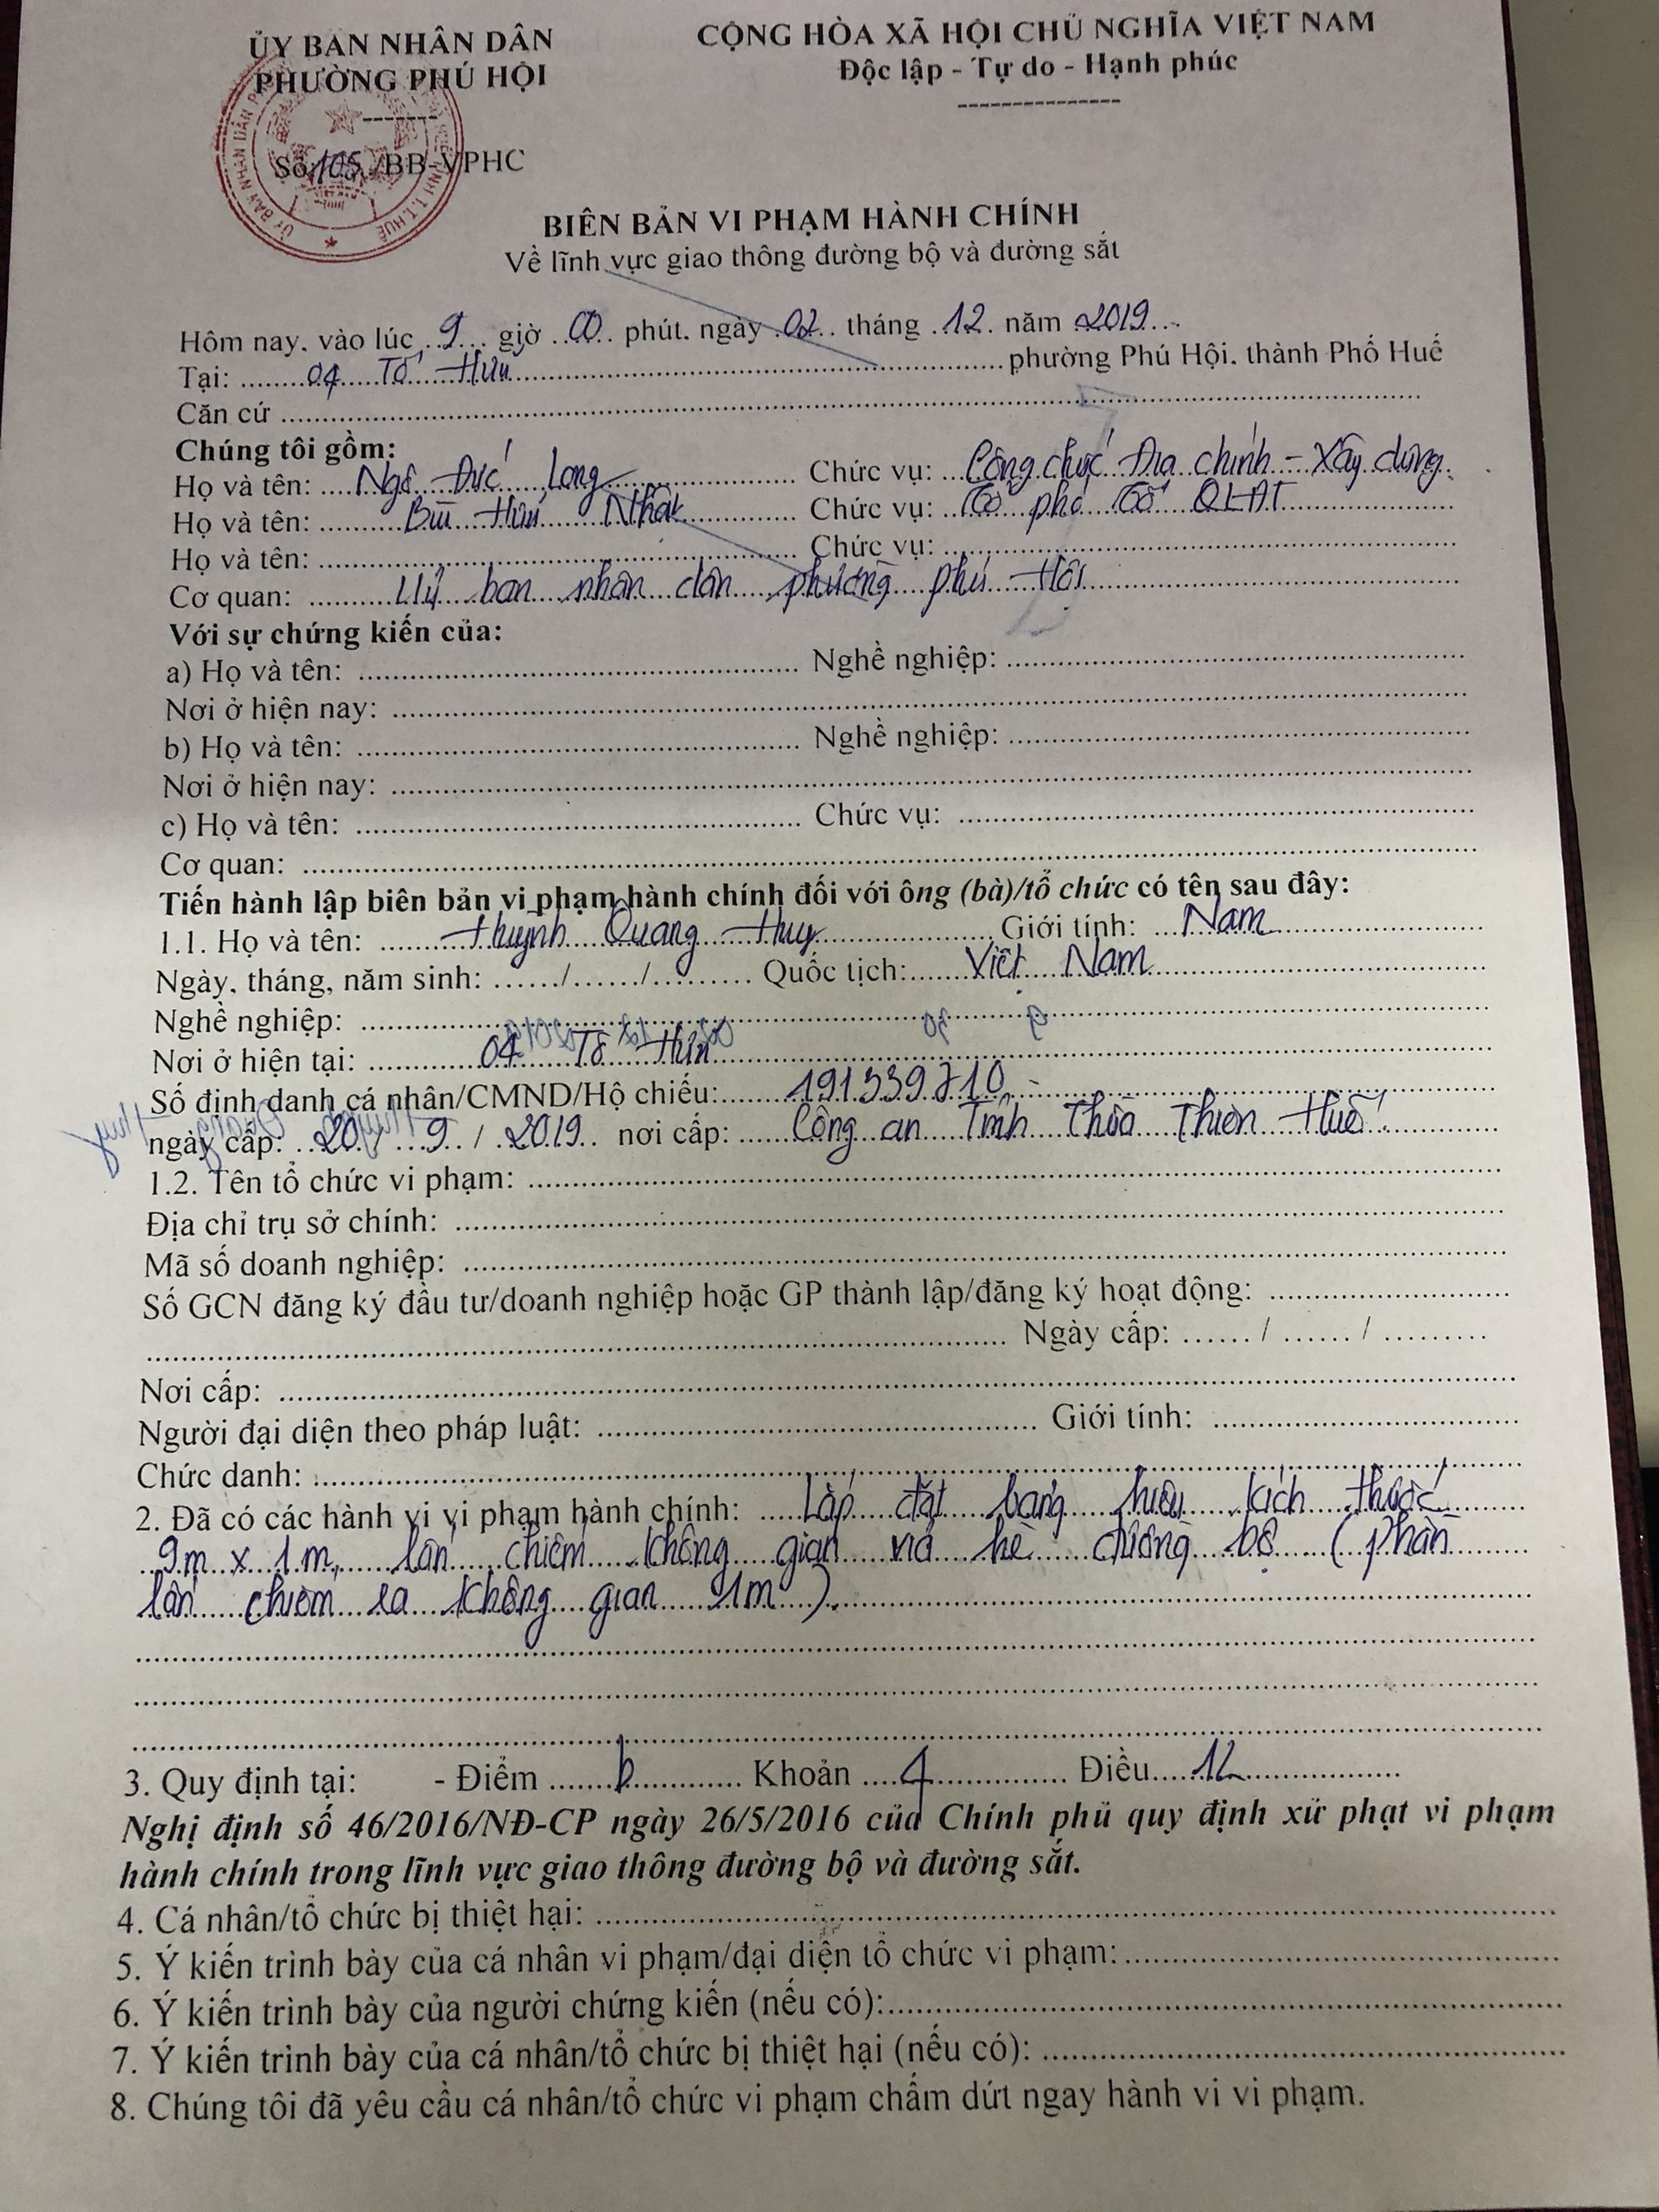 ỦY BAN NHÂN DÂN
PHƯỜNG PHÚ HỘI
-------
CỘNG HÒA XÃ HỘI CHỦ NGHĨA VIỆT NAM
Độc lập - Tự do - Hạnh phúc
---------------
Số: 105 /BB-VPHC
BIÊN BẢN VI PHẠM HÀNH CHÍNH
Về lĩnh vực giao thông đường bộ và đường sắt
Hôm nay, vào lúc 9 giờ 00 phút, ngày 02 tháng 12 năm 2019
Tại: 04 Tố Hữu phường Phú Hội, thành Phố Huế
Căn cứ
Chúng tôi gồm:
Họ và tên: Ngô Đức Long Chức vụ: Công chức Địa chính - Xây dựng
Họ và tên: Bùi Hữu Nhật Chức vụ: Tổ phó Tổ QLĐT
Họ và tên: Chức vụ:
Cơ quan: Uỷ ban nhân dân phường phú Hội
Với sự chứng kiến của:
a) Họ và tên: Nghề nghiệp:
Nơi ở hiện nay:
b) Họ và tên: Nghề nghiệp:
Nơi ở hiện nay:
c) Họ và tên: Chức vụ:
Cơ quan:
Tiến hành lập biên bản vi phạm hành chính đối với ông (bà)/tổ chức có tên sau đây:
1.1. Họ và tên: Huỳnh Quang Huy Giới tính: Nam
Ngày, tháng, năm sinh: ....../....../......... Quốc tịch: Việt Nam
Nghề nghiệp:
Nơi ở hiện tại: 04 Tố Hữu
Số định danh cá nhân/CMND/Hộ chiếu:
ngày cấp: 20 / 9 / 2019 nơi cấp: Công an Tỉnh Thừa Thiên Huế
1.2. Tên tổ chức vi phạm:
Địa chỉ trụ sở chính:
Mã số doanh nghiệp:
Số GCN đăng ký đầu tư/doanh nghiệp hoặc GP thành lập/đăng ký hoạt động:
Ngày cấp: ...... / ...... / .........
Nơi cấp:
Người đại diện theo pháp luật: Giới tính:
Chức danh:
2. Đã có các hành vi vi phạm hành chính: Lắp đặt bảng hiệu kích thước
9m x 1m, lấn chiếm không gian vỉa hè đường bộ (phần
lấn chiếm ra không gian 1m).
3. Quy định tại: - Điểm b Khoản 4 Điều 12
Nghị định số 46/2016/NĐ-CP ngày 26/5/2016 của Chính phủ quy định xử phạt vi phạm
hành chính trong lĩnh vực giao thông đường bộ và đường sắt.
4. Cá nhân/tổ chức bị thiệt hại:
5. Ý kiến trình bày của cá nhân vi phạm/đại diện tổ chức vi phạm:
6. Ý kiến trình bày của người chứng kiến (nếu có):
7. Ý kiến trình bày của cá nhân/tổ chức bị thiệt hại (nếu có):
8. Chúng tôi đã yêu cầu cá nhân/tổ chức vi phạm chấm dứt ngay hành vi vi phạm.